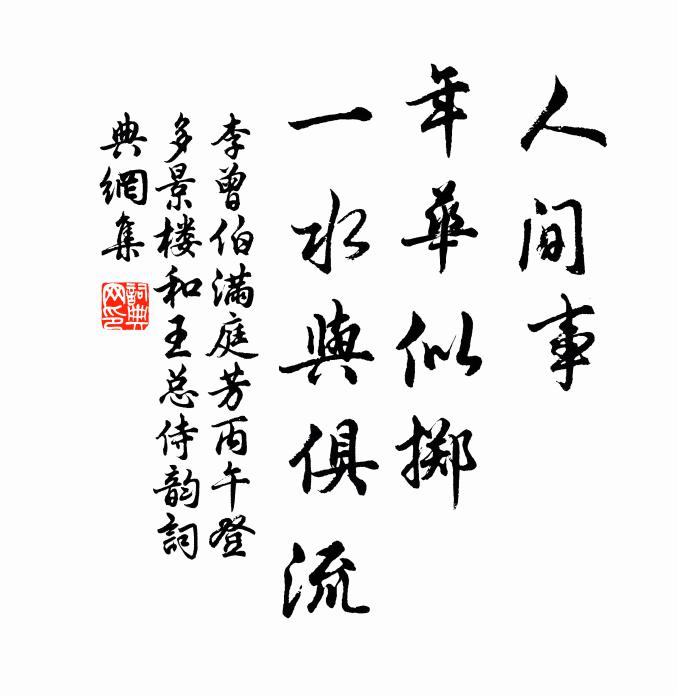 人间事
年華似掷
一水與俱流
李曾伯满庭芳丙午登
多景楼和王总侍韵詞
典網集
詞典
网印